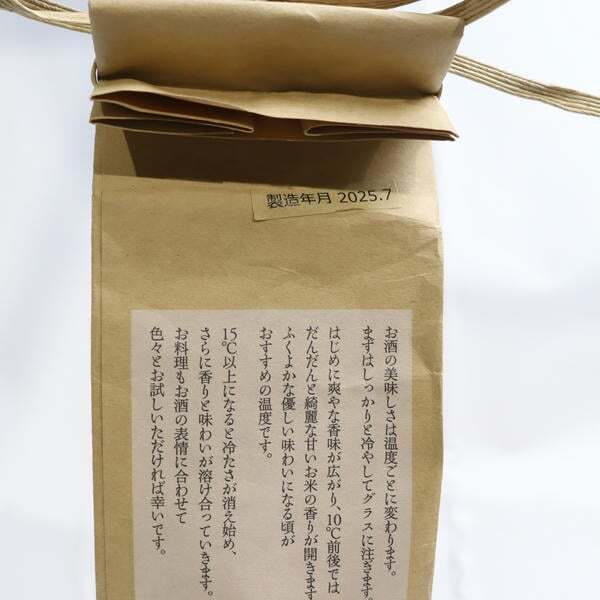 製造年月 2025.7
お酒の美味しさは温度ごとに変わります。
まずはしっかりと冷やしてグラスに注ぎます。
はじめに爽やな香味が広がり、10℃前後では
だんだんと綺麗な甘いお米の香りが開きます
ふくよかな優しい味わいになる頃が
おすすめの温度です。
15℃以上になると冷たさが消え始め、
さらに香りと味わいが溶け合っていきます。
お料理もお酒の表情に合わせて
色々とお試しいただければ幸いです。